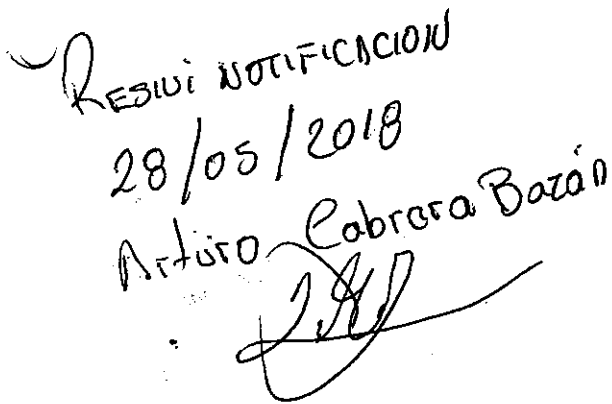 RESIVI NOTIFICACION
28/05/2018
Arturo Cabrera Bazán